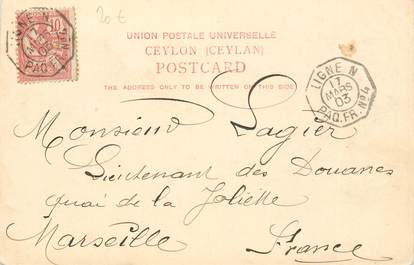 20 €
10
LIGNE N
17
MARS
03
PAQ. FR.
UNION POSTALE UNIVERSELLE
CEYLON (CEYLAN)
POSTCARD
THE ADDRESS ONLY TO BE WRITTEN ON THIS SIDE
LIGNE N
17
MARS
03
PAQ. FR. No 4
Monsieur Lagier
Lieutenant des Douanes
quai de la Joliette
Marseille
France